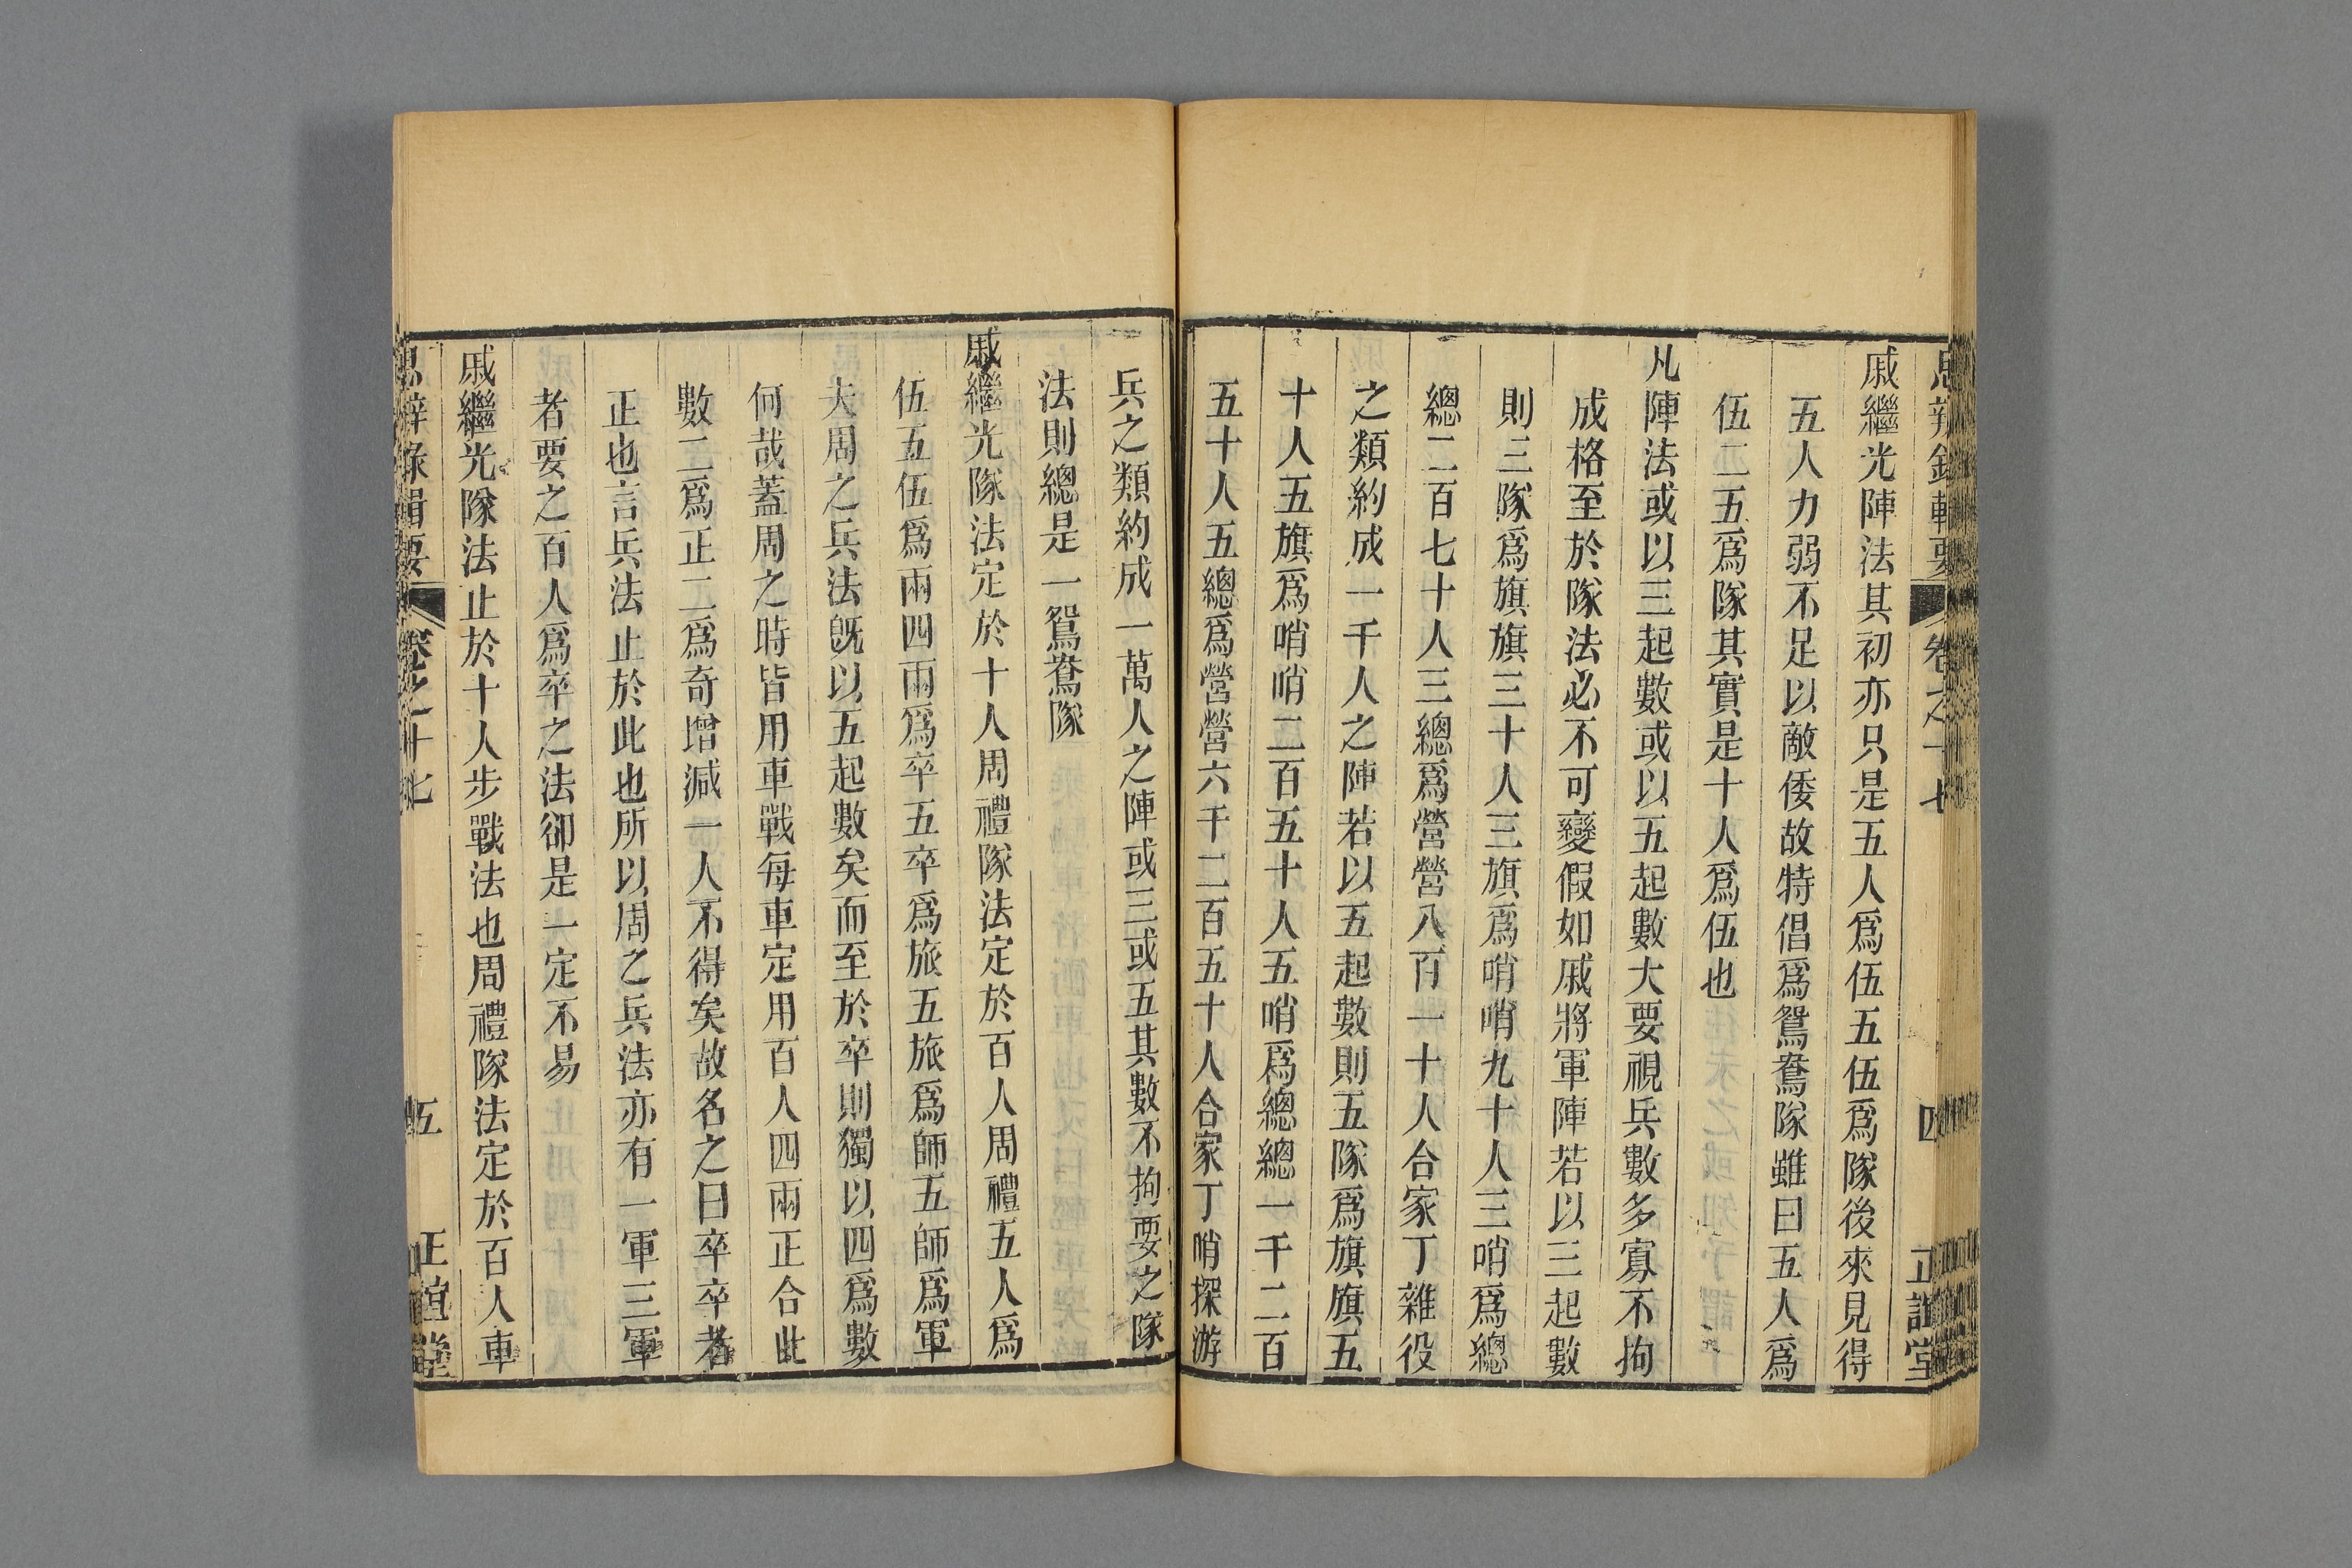 思辨錄輯要 卷之十七 四 正誼堂
戚繼光陣法其初亦只是五人爲伍五伍爲隊後來見得
五人力弱不足以敵倭故特倡爲鴛鴦隊雖曰五人爲
伍二五爲隊其實是十人爲伍也
凡陣法或以三起數或以五起數大要視兵數多寡不拘
成格至於隊法必不可變假如戚將軍陣若以三起數
則三隊爲旗旗三十人三旗爲哨哨九十人三哨爲總
總二百七十人三總爲營營八百一十人合家丁雜役
之類約成一千人之陣若以五起數則五隊爲旗旗五
十人五旗爲哨哨二百五十人五哨爲總總一千二百
五十人五總爲營營六千二百五十人合家丁哨探游
兵之類約成一萬人之陣或三或五其數不拘要之隊
法則總是一鴛鴦隊
戚繼光隊法定於十人周禮隊法定於百人周禮五人爲
伍五伍爲兩四兩爲卒五卒爲旅五旅爲師五師爲軍
夫周之兵法旣以五起數矣而至於卒則獨以四爲數
何哉蓋周之時皆用車戰每車定用百人四兩正合此
數二爲正二爲奇增減一人不得矣故名之曰卒卒者
正也言兵法止於此也所以周之兵法亦有一軍三軍
者要之百人爲卒之法卻是一定不易
戚繼光隊法止於十人步戰法也周禮隊法定於百人車
思辨錄輯要 卷之十七 五 正誼堂